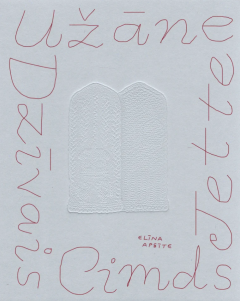 Užāne
Jette
Dzīvais
Cimds
ELĪNA
APSĪTE